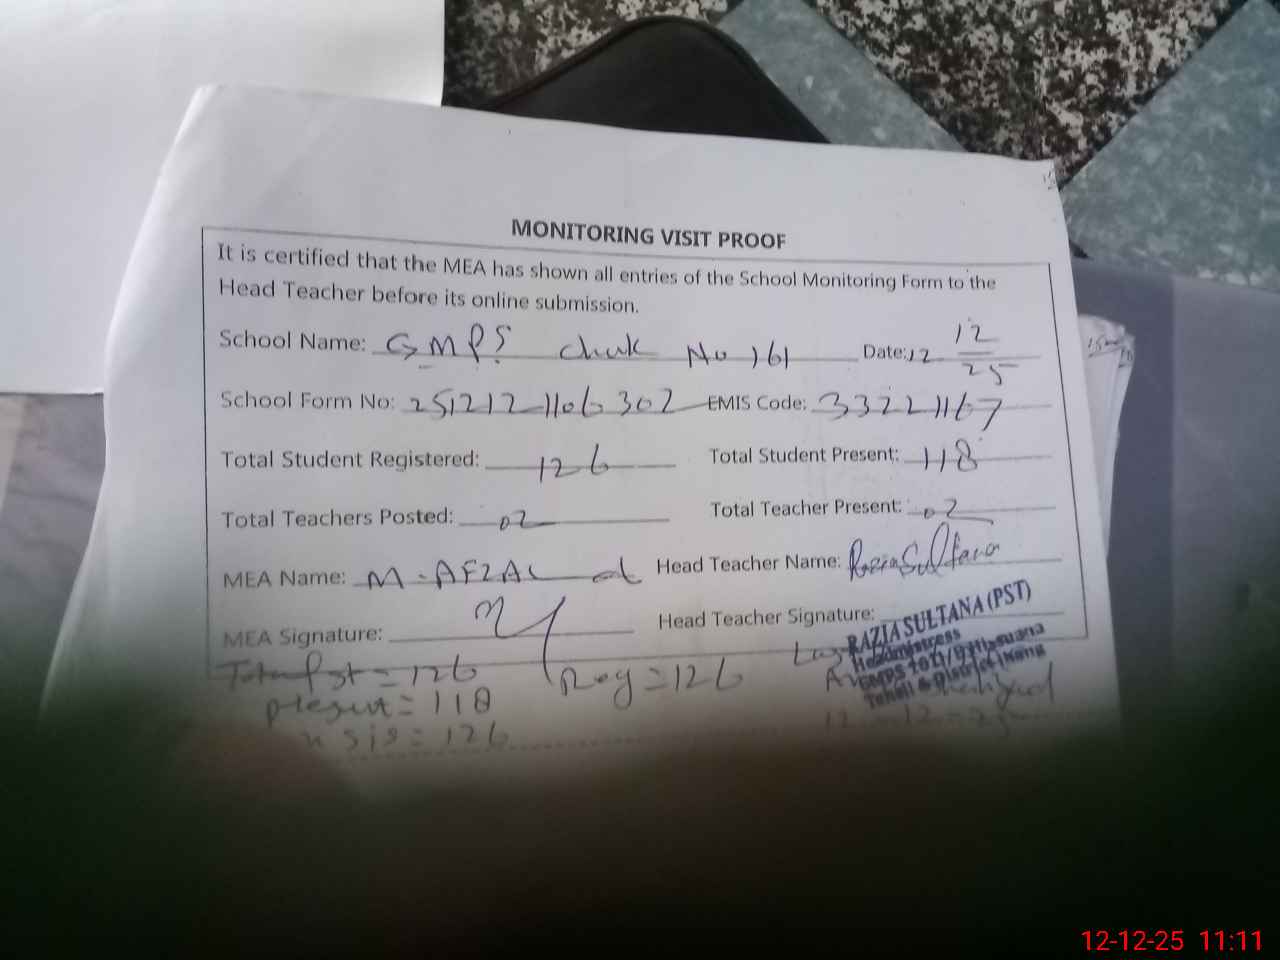 MONITORING VISIT PROOF
It is certified that the MEA has shown all entries of the School Monitoring Form to the
Head Teacher before its online submission.
School Name: GMPS Chak No 161 Date: 12 12 25
School Form No: 251212 1106302 EMIS Code: 33221167
Total Student Registered: 126 Total Student Present: 118
Total Teachers Posted: 02 Total Teacher Present: 02
MEA Name: M-AFZAL Head Teacher Name: Razia Sultana
MEA Signature: Head Teacher Signature:
RAZIA SULTANA (PST)
Headmistress
GMPS
Tehsil & District
Total = 126 Reg = 126
present = 118
sis = 126
12-12-25
12-12-25 11:11